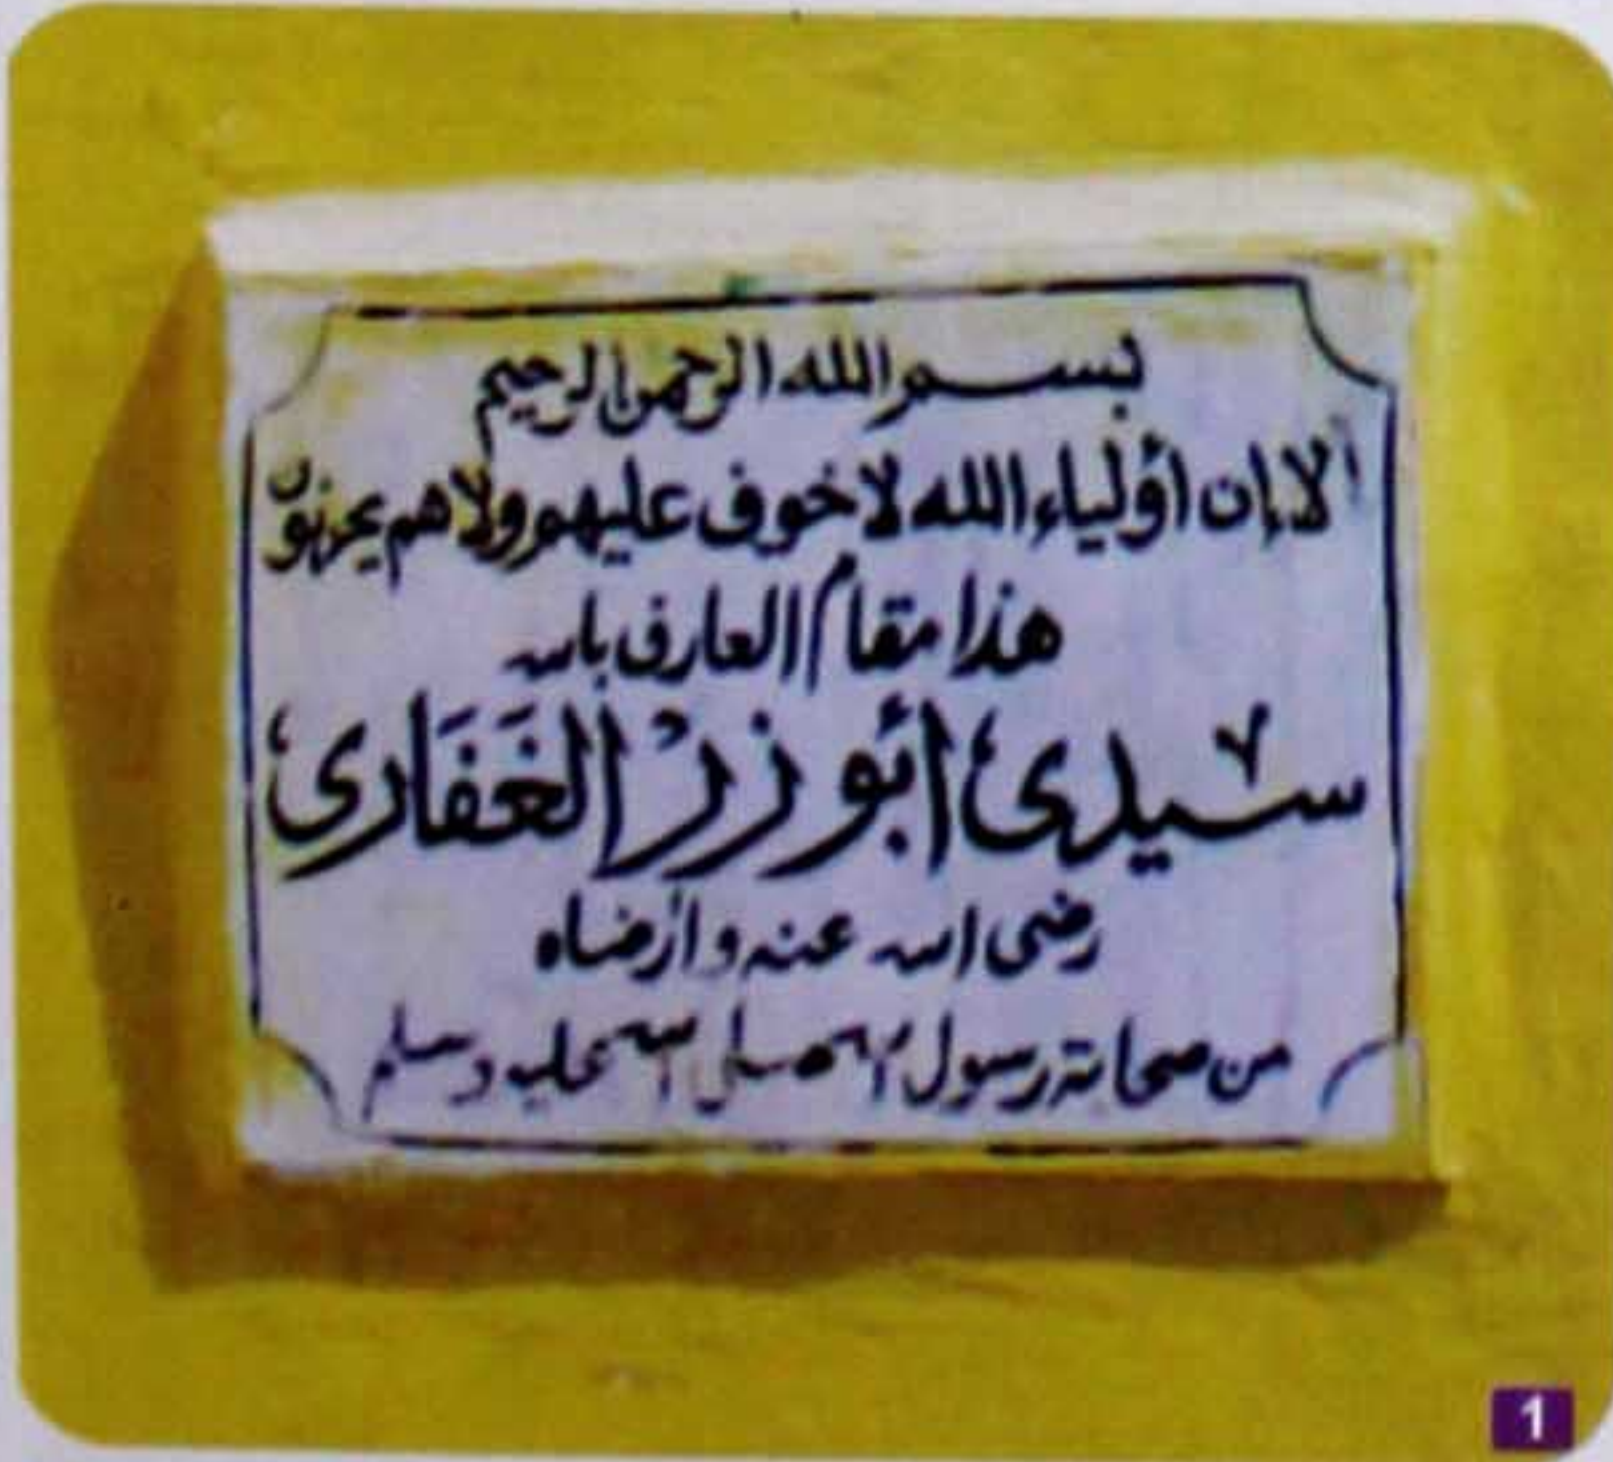 بسم الله الرحمن الرحيم
الا إن أولياء الله لا خوف عليهم ولا هم يحزنون
هذا مقام العارف بالله
سيدى أبو زر الغَفَارى
رضى الله عنه وأرضاه
من صحابة رسول الله صلى الله عليه وسلم
1